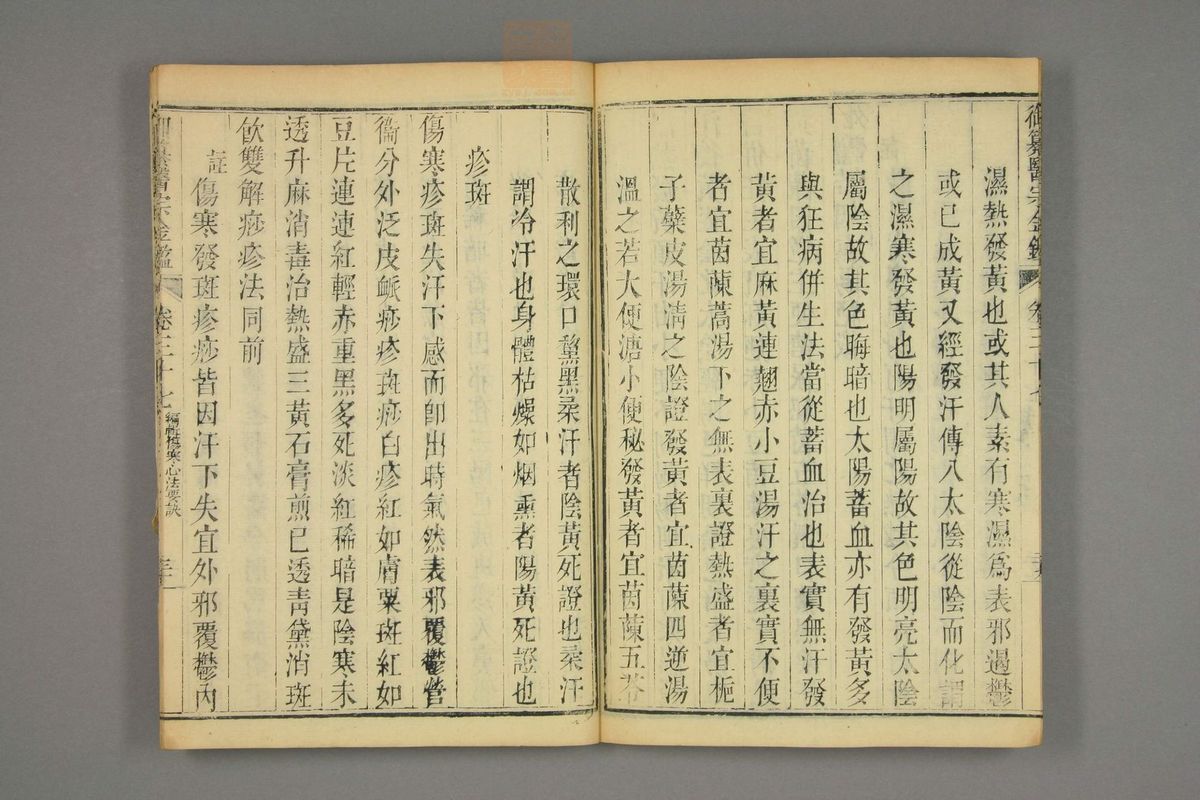 御纂醫宗金鑑 卷三十七
濕熱發黃也或其人素有寒濕爲表邪遏鬱
或已成黃又經發汗傳入太陰從陰而化謂
之濕寒發黃也陽明屬陽故其色明亮太陰
屬陰故其色晦暗也太陽蓄血亦有發黃多
與狂病併生法當從蓄血治也表實無汗發
黃者宜麻黃連翹赤小豆湯汗之裏實不便
者宜茵蔯蒿湯下之無表裏證熱盛者宜梔
子蘗皮湯淸之陰證發黃者宜茵蔯四逆湯
溫之若大便溏小便秘發黃者宜茵蔯五苓
散利之環口黧黑柔汗者陰黃死證也柔汗
謂冷汗也身體枯燥如烟熏者陽黃死證也
疹斑
傷寒疹斑失汗下感而卽出時氣然表邪覆鬱營
衞分外泛皮䘑痧疹斑痧白疹紅如膚粟斑紅如
豆片連連紅輕赤重黑多死淡紅稀暗是陰寒未
透升麻消毒治熱盛三黃石膏煎已透靑黛消斑
飲雙解痧疹法同前
註
傷寒發斑疹痧皆因汗下失宜外邪覆鬱內
御纂醫宗金鑑 卷三十七 編輯傷寒心法要訣